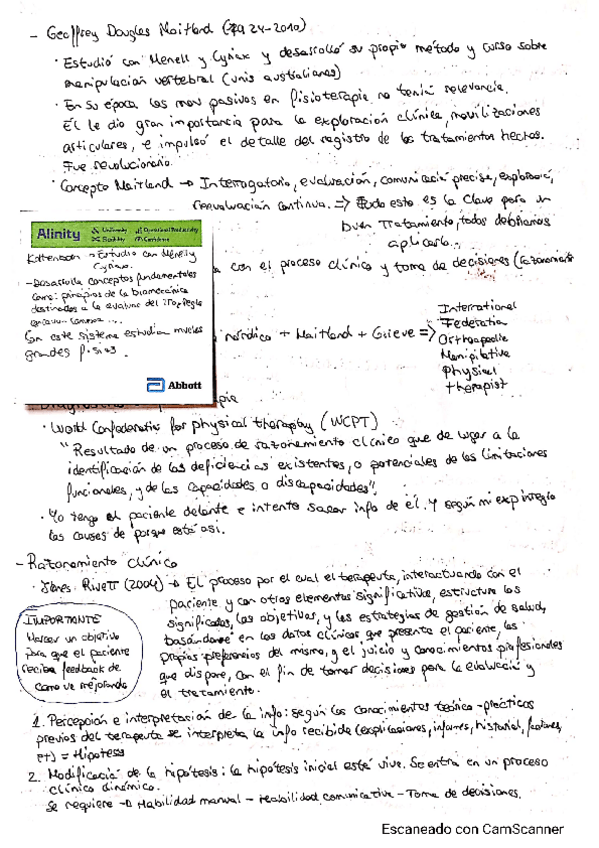 - Geoffrey Douglas Maitland (1924-2010)
· Estudió con Menell y Cyriax y desarrolló su propio método y curso sobre
manipulación vertebral (unis australianas)
· En su época los mov pasivos en fisioterapia no tenía relevancia.
Él le dio gran importancia para la exploración clínica, movilizaciones
articulares, e impulsó el detalle del registro de los tratamientos hechos.
Fue revolucionario.
· Concepto Maitland → Interrogatorio, evaluación, comunicació precisa, exploració,
reevaluación continua. => Todo esto es la clave para un
buen Tratamiento, todos deberíamos
aplicarlo...
Alinity
Kaltenborn → Estudió con Menell y
Cyriax.
- Desarrolla conceptos fundamentales
como: principios de la biomecánica
Con este sistema estudian muchos
grandes fisios.
Abbott
con el proceso clínico y toma de decisiones (razonamiento
nórdico + Maitland + Grieve =>
International
Federation
Orthopaedic
Manipulative
Physical
therapist
· World Confederation for physical theraphy (WCPT)
"Resultado de un proceso de razonamiento clínico que da lugar a la
identificación de las deficiencias existentes, o potenciales de las limitaciones
funcionales, y de las capacidades o discapacidades".
· Yo tengo el paciente delante e intento sacar info de él. Y según mi exp integro
las causas de porque está así.
- Razonamiento clínico
· Jones Rivett (2004) → El proceso por el cual el terapeuta, interactuando con el
paciente y con otros elementos significativos, estructura los
significados, los objetivos, y las estrategias de gestión de salud,
basándose en los datos clínicos que presenta el paciente, las
propias preferencias del mismo, y el juicio y conocimientos profesionales
que dispone, con el fin de tomar decisiones para la evaluación y
el tratamiento.
IMPORTANTE
Marcar un objetivo
para que el paciente
reciba feedback de
como va mejorando
1. Percepción e interpretación de la info: según los conocimientos teórico-prácticos
previos del terapeuta se interpreta la info recibida (explicaciones, informes, historial,
= Hipótesis
2. Modificació de la hipótesis: la hipótesis inicial está viva. Se entra en un proceso
clínico dinámico.
Se requiere → Habilidad manual - Habilidad comunicativa - Toma de decisiones.
Escaneado con CamScanner